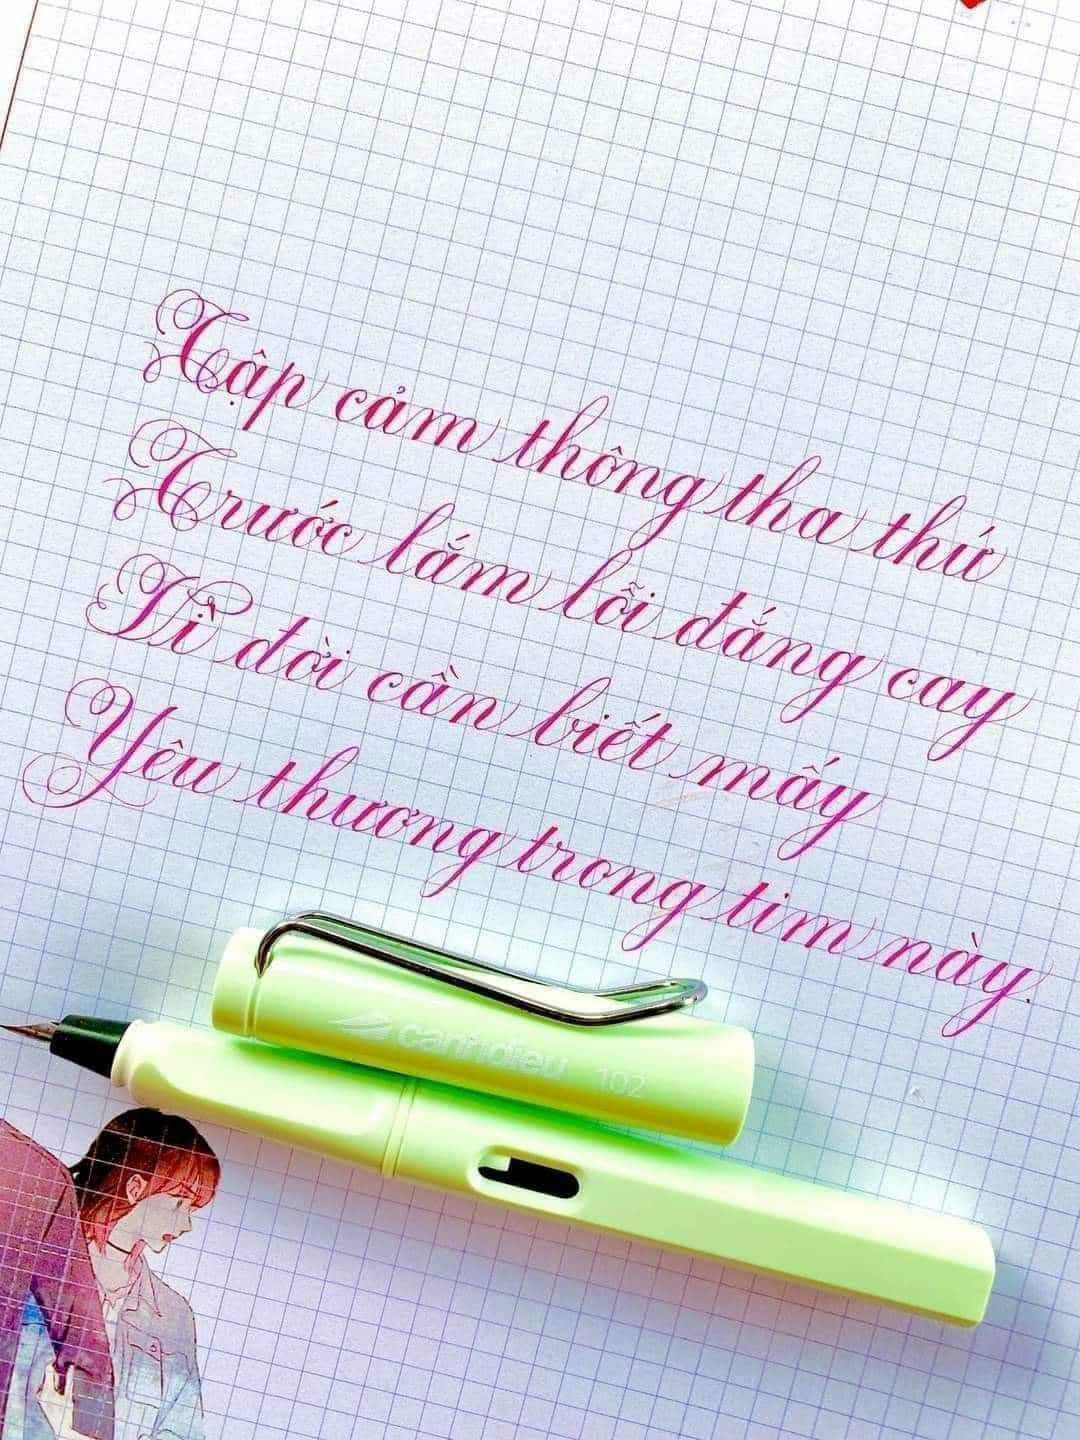 Tập cảm thông tha thứ
Trước lắm lỗi đắng cay
Vì đời cần biết mấy
Yêu thương trong tim này.
canhdieu 102